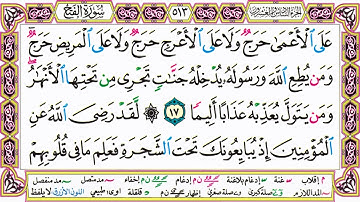 سُورَةُ الفَتْحِ ٥١٣ الجزء السادس والعشرون
عَلَى ٱلْأَعْمَىٰ حَرَجٌ وَلَا عَلَى ٱلْأَعْرَجِ حَرَجٌ وَلَا عَلَى ٱلْمَرِيضِ حَرَجٌ
وَمَن يُطِعِ ٱللَّهَ وَرَسُولَهُۥ يُدْخِلْهُ جَنَّـٰتٍ تَجْرِى مِن تَحْتِهَا ٱلْأَنْهَـٰرُ
وَمَن يَتَوَلَّ يُعَذِّبْهُ عَذَابًا أَلِيمًا ١٧ لَّقَدْ رَضِىَ ٱللَّهُ عَنِ
ٱلْمُؤْمِنِينَ إِذْ يُبَايِعُونَكَ تَحْتَ ٱلشَّجَرَةِ فَعَلِمَ مَا فِى قُلُوبِهِمْ